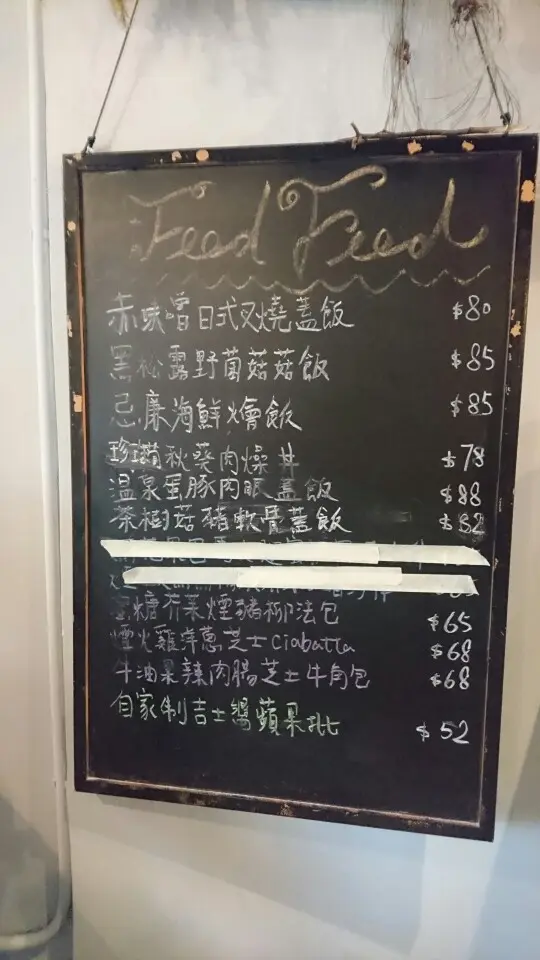 Feed Feed
赤味噌日式叉燒蓋飯 $80
黑松露野菌菇菇飯 $85
忌廉海鮮燴飯 $85
珍珠菌秋葵肉燥丼 $78
温泉蛋豚肉眼蓋飯 $88
茶樹菇豬軟骨蓋飯 $82
蜜糖芥茉煙豬柳法包 $65
煙火雞洋蔥芝士Ciabatta $68
牛油果辣肉腸芝士牛角包 $68
自家制吉士燙蘋果批 $52